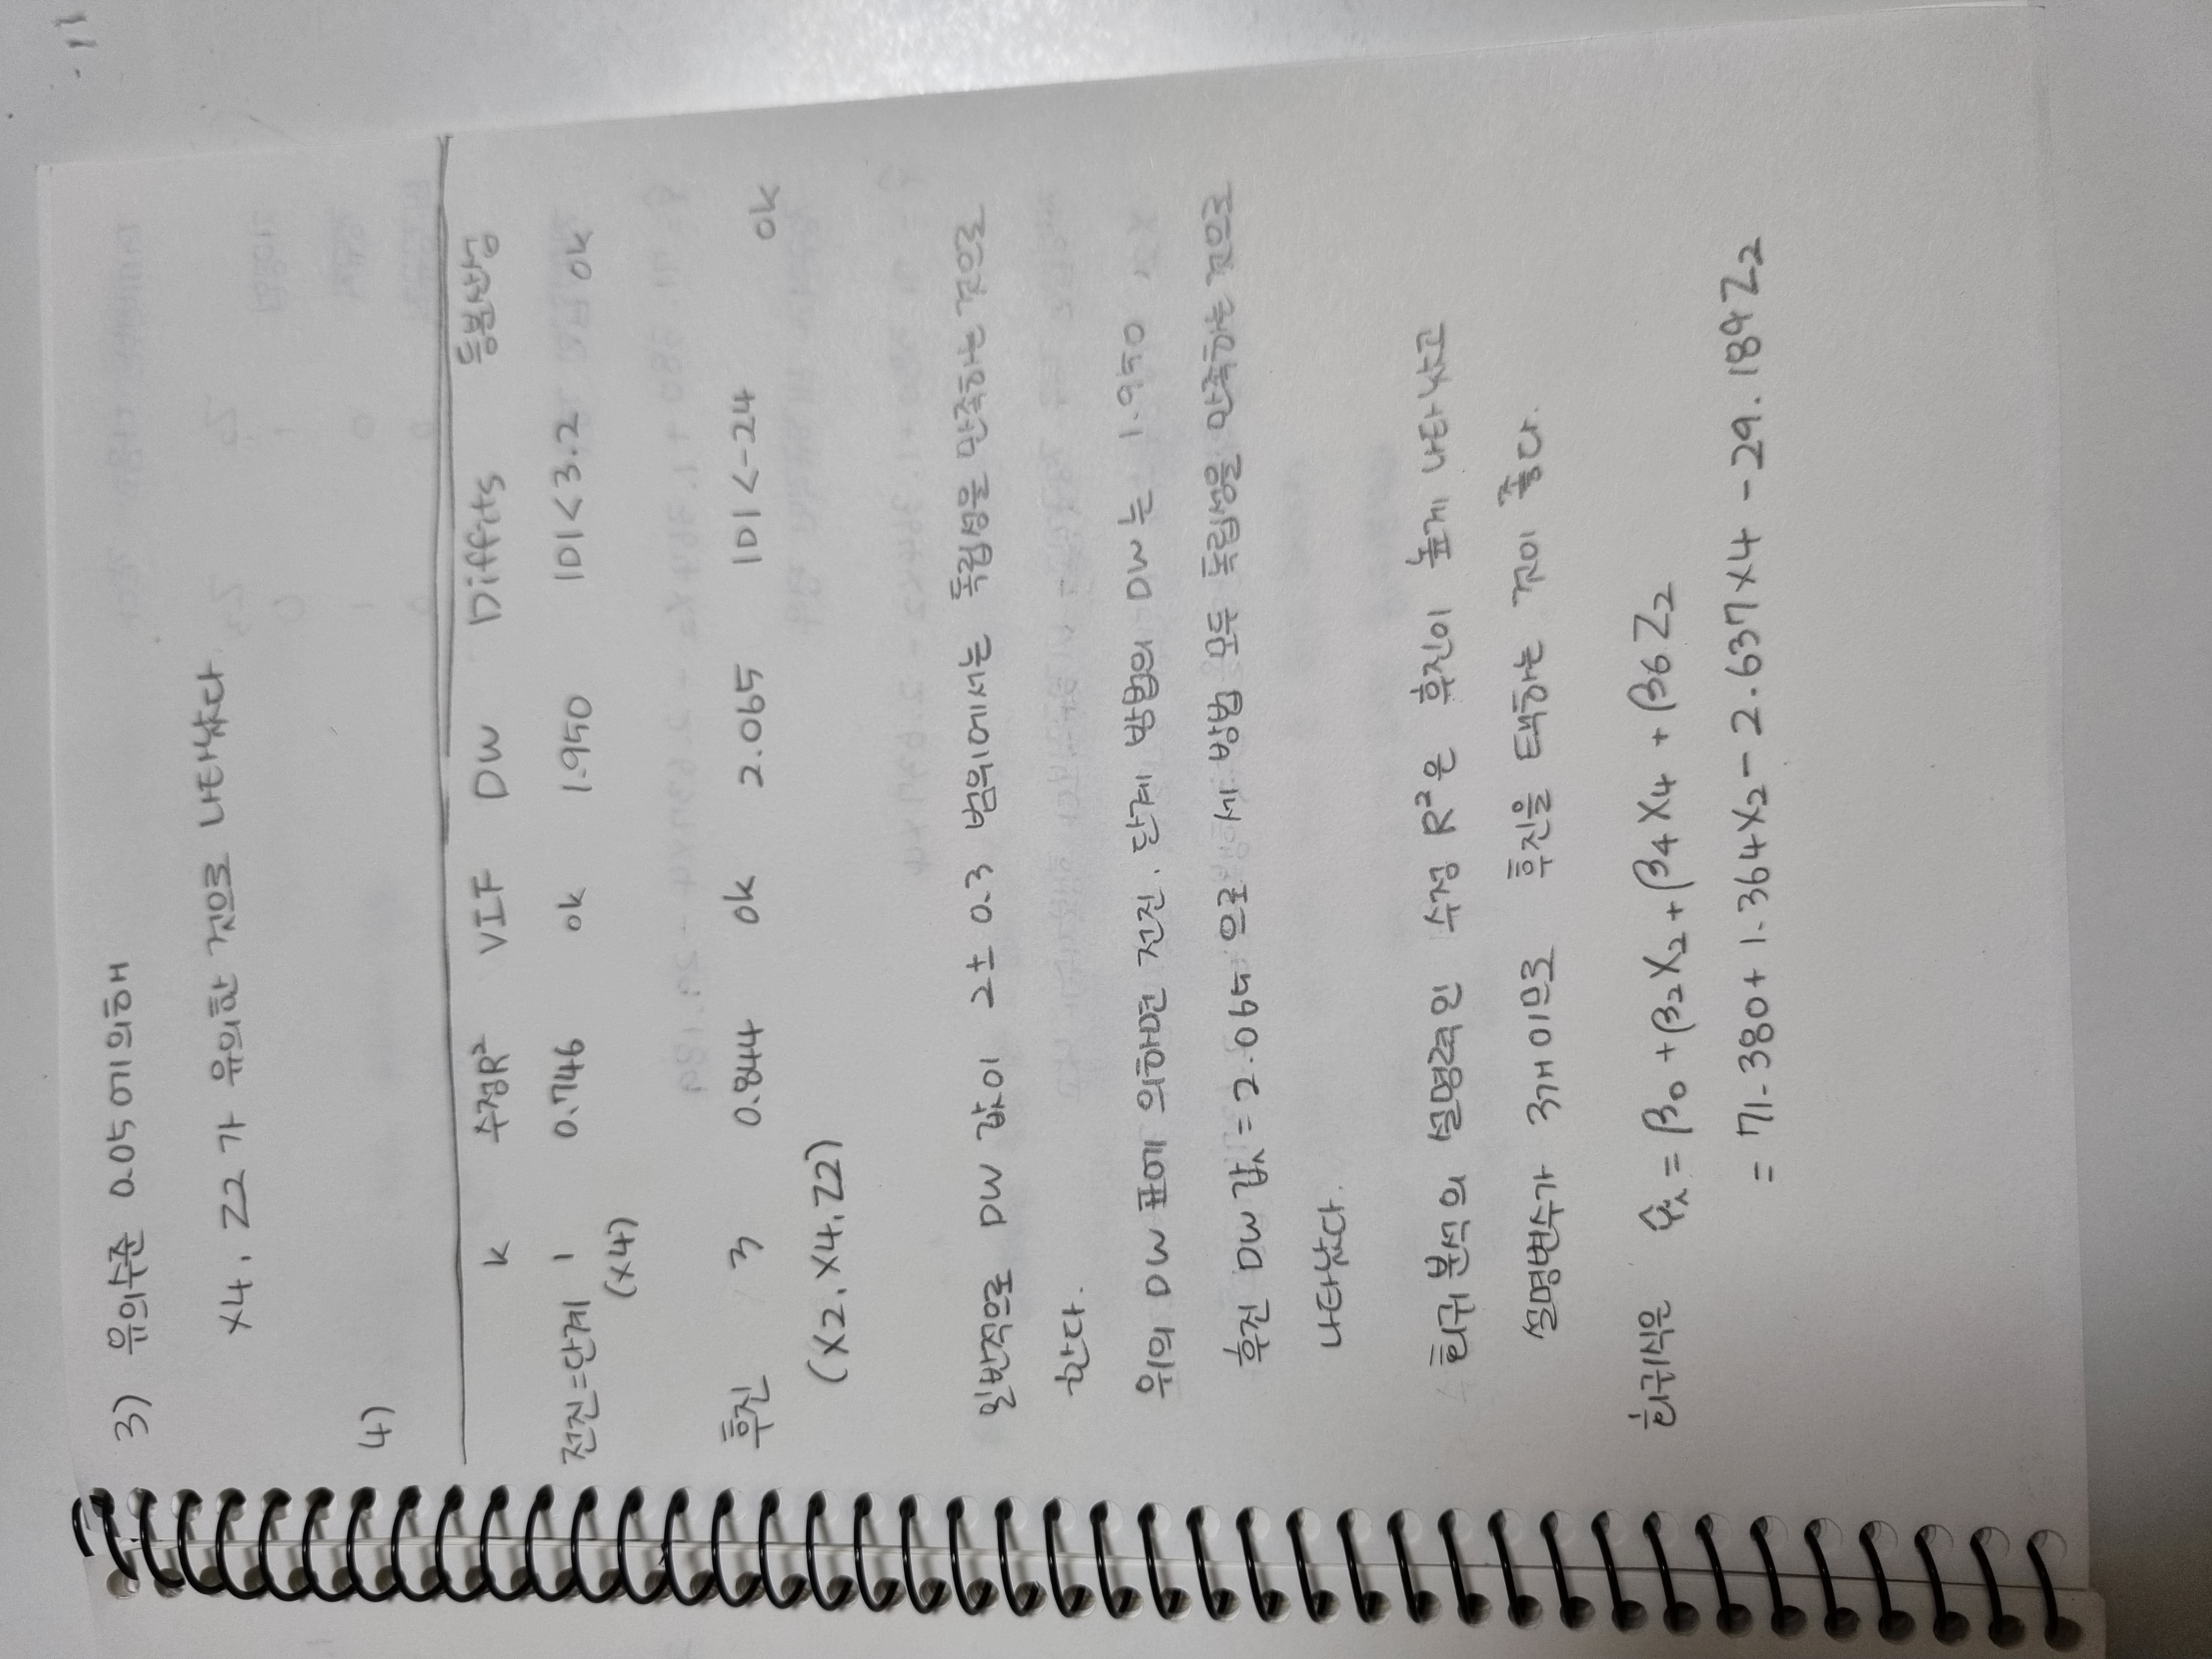 3) 유의수준 0.05에의해
X4, Z2가 유의한 것으로 나타났다
4)
k 수정R² VIF DW Diffits 등분산성
전진=단계 1 0.746 ok 1.950 |D|<3.2 ok
(X4)
후진 3 0.844 ok 2.065 |D|<-24 ok
(X2, X4, Z2)
일반적으로 DW 값이 2±0.3 범위에서는 독립성을 만족하는 것으로
한다.
위의 DW 표에 의하면 전진, 단계 방법의 DW는 1.950,
후진 DW 값 = 2.065 으로 세 방법 모두 독립성을 만족하는 것으로
나타났다.
회귀분석의 설명력인 수정 R²은 후진이 높게 나타났고
설명변수가 3개이므로 후진을 택하는 것이 좋다.
회귀식은 Ŷ = β0 + β2X2 + β4X4 + β6Z2
= 71.380 + 1.364X2 - 2.637X4 - 29.189Z2